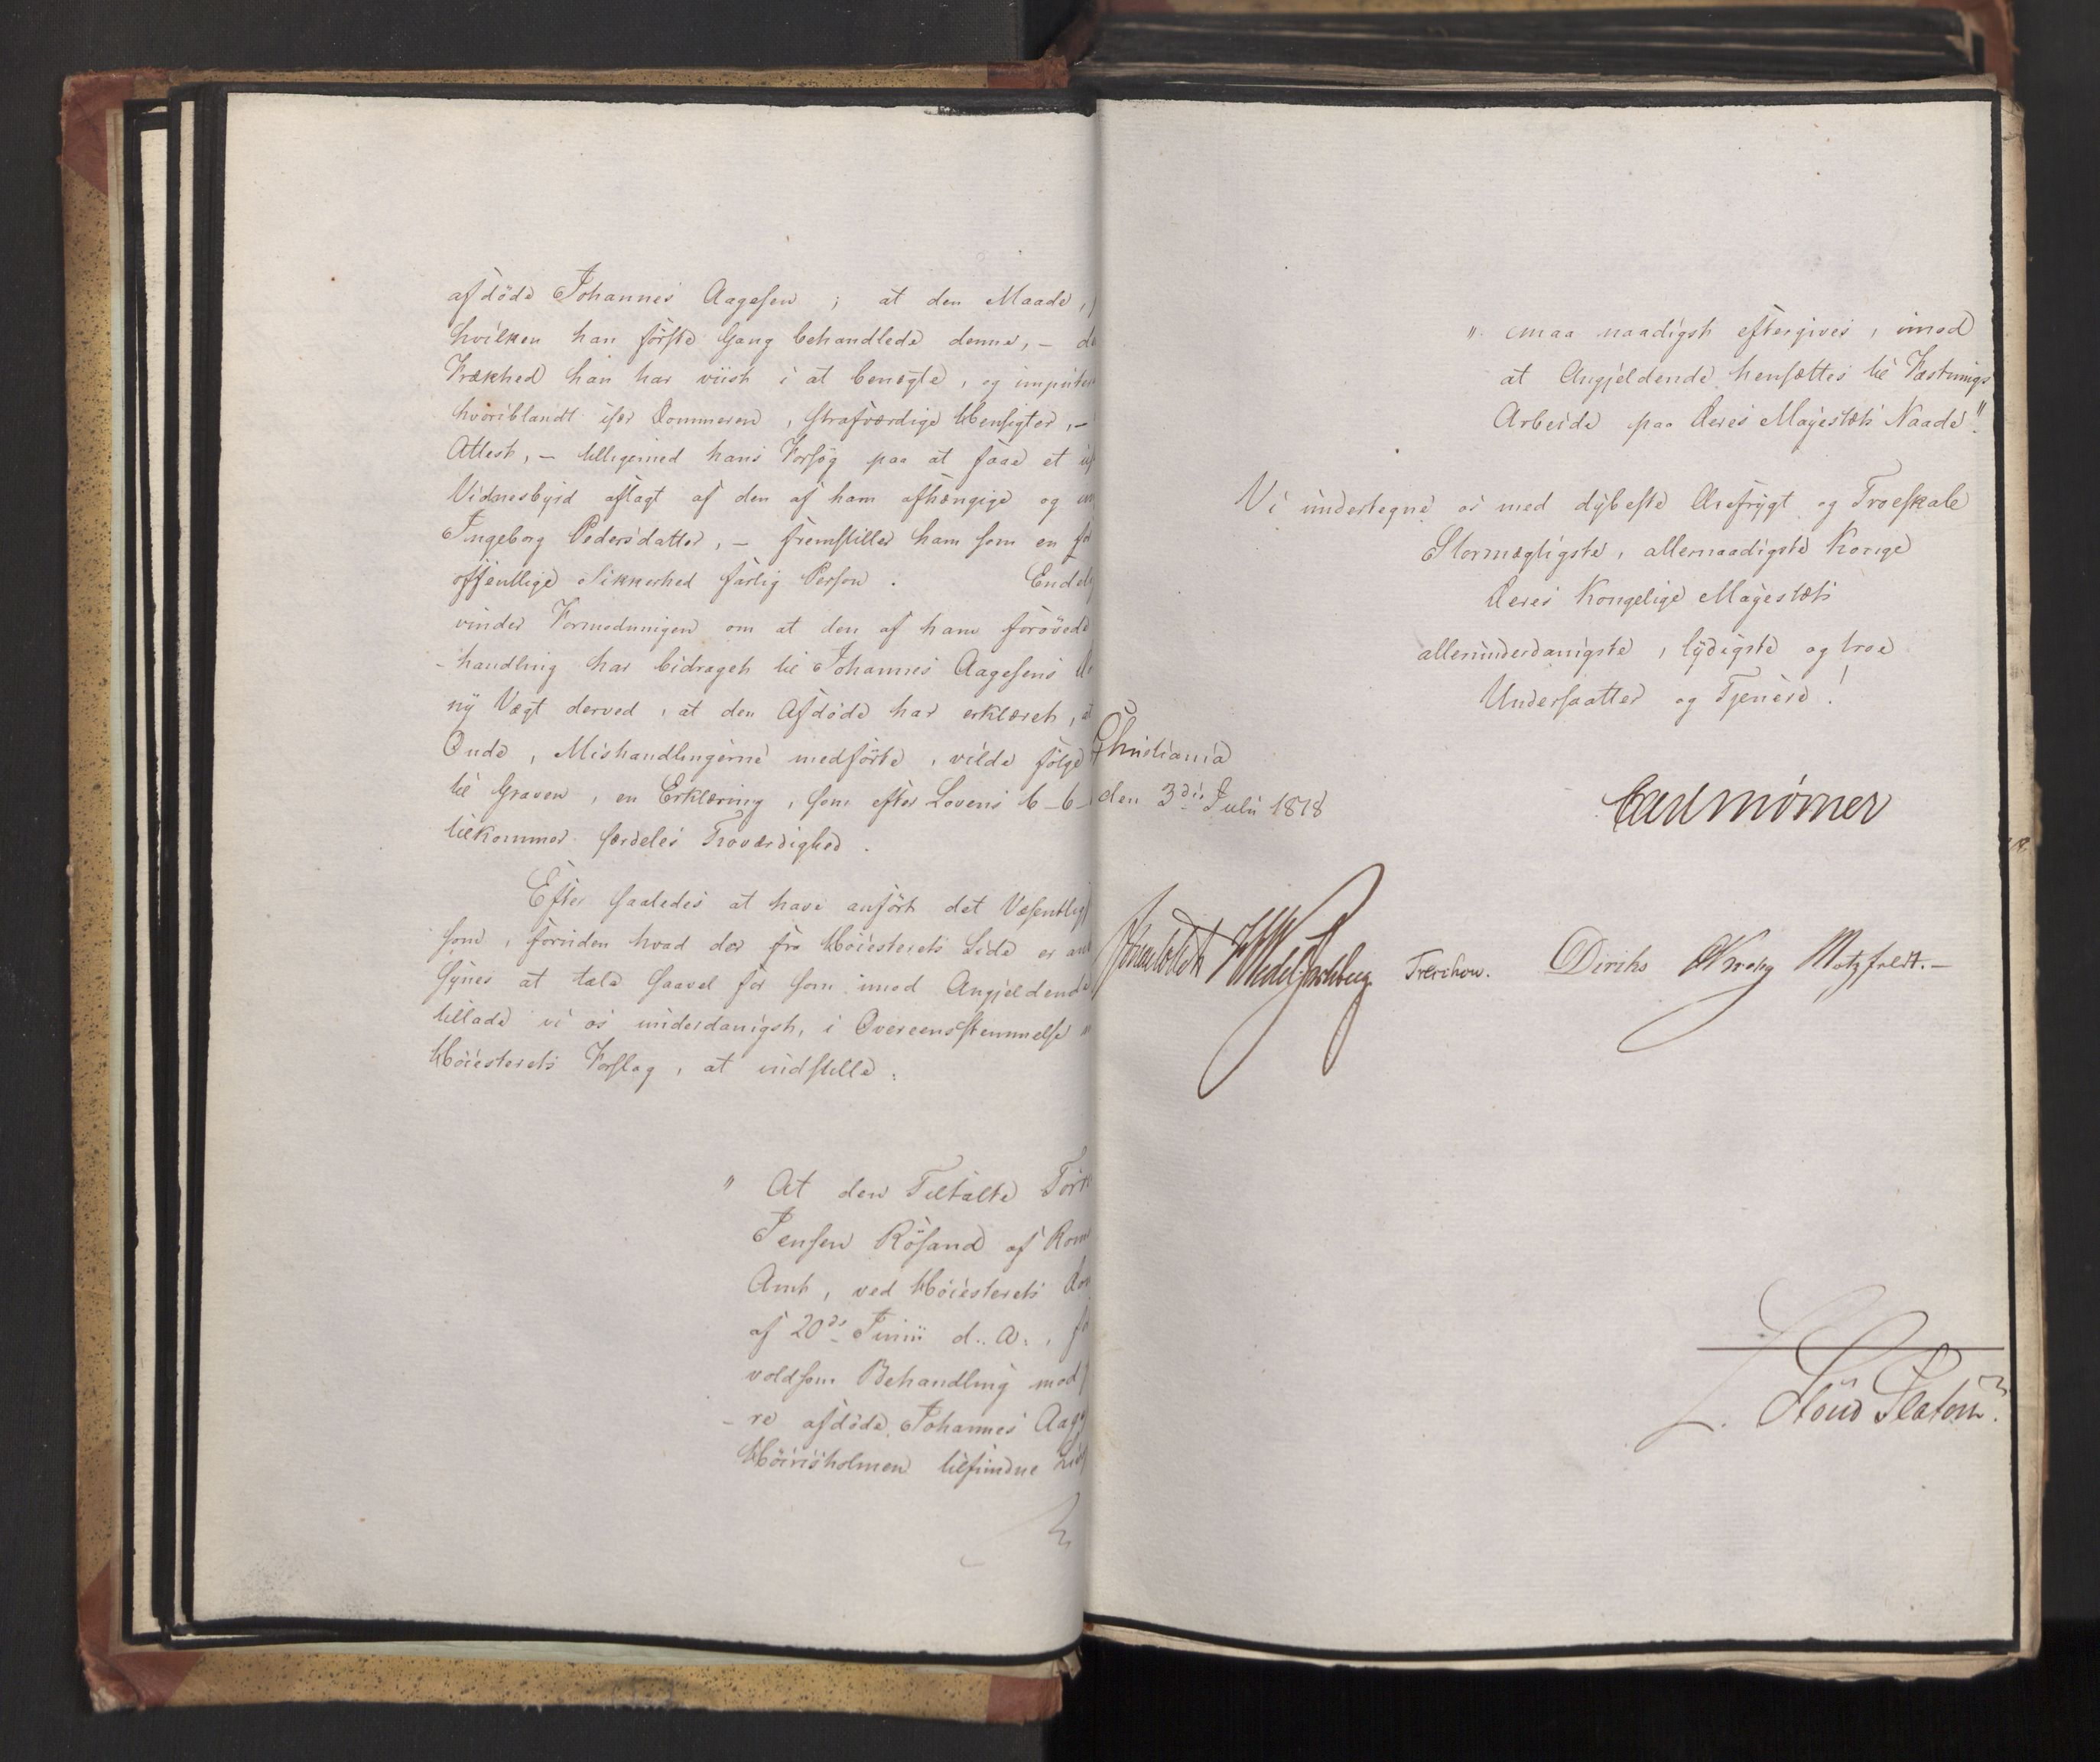 afdöde Johannes Aagesen ; at den Maade,
hvilken han förste Gang behandlede denne, –
Frækhed han har viist i at benægte, og
hvoriblandt især Dommeren, strafværdige Hensigter, –
Attest, – tilligemed hans Forsög paa at faae et
Vidnesbyrd aflagt af den af ham afhængige og
Ingeborg Pedersdatter, – fremstiller ham som en
offentlige Sikkerhed farlig Person.
vinder Formodningen om at den af ham forövede
-handling har bidraget til Johannes Aagesens
ny Vægt derved, at den Afdöde har erklæret,
Onde, Mishandlingerne medförte, vilde fölge
til Graven, en Erklæring, som efter Lovens 6-6-
tilkommer særdeles Troværdighed.
Efter saaledes at have anfört det
som, foruden hvad der fra Höiesterets Side er
synes at tale saavel for som imod Angjeldende
tillade vi os underdanigst, i Overeensstemmelse
Höiesterets Forslag, at indstille:
" At den Tiltalte
Jensen Rösand af
Amt, ved Höiesterets
af 20de Junii d. A.,
voldsom Behandling mod
-re afdöde Johannes
tilfundne
" maa naadigst eftergives, imod
at Angjeldende hensættes til Fæstnings
Arbeide paa Deres Majestæts Naade".
Vi undertegne os med dybeste Ærefrygt og Troeskab
Stormægtigste, allernaadigste Konge
Deres Kongelige Majestæts
allerunderdanigste, lydigste og troe
Undersaatter og Tjenere!
Christiania
den 3die Julii 1818
Carl Mörner
Treschow. Diriks Krog Motzfeldt.–